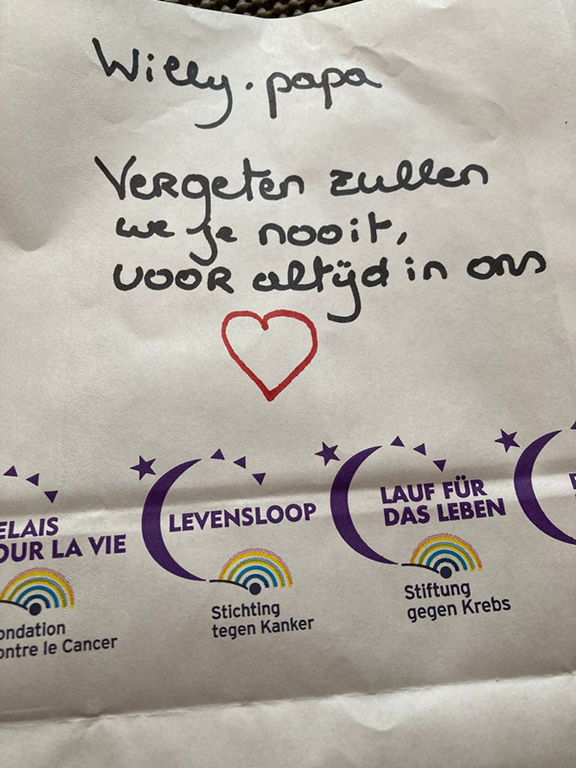 Willy. papa
Vergeten zullen
we je nooit,
voor altijd in ons
ELAIS
OUR LA VIE
ondation
ontre le Cancer
LEVENSLOOP
Stichting
tegen Kanker
LAUF FÜR
DAS LEBEN
Stiftung
gegen Krebs